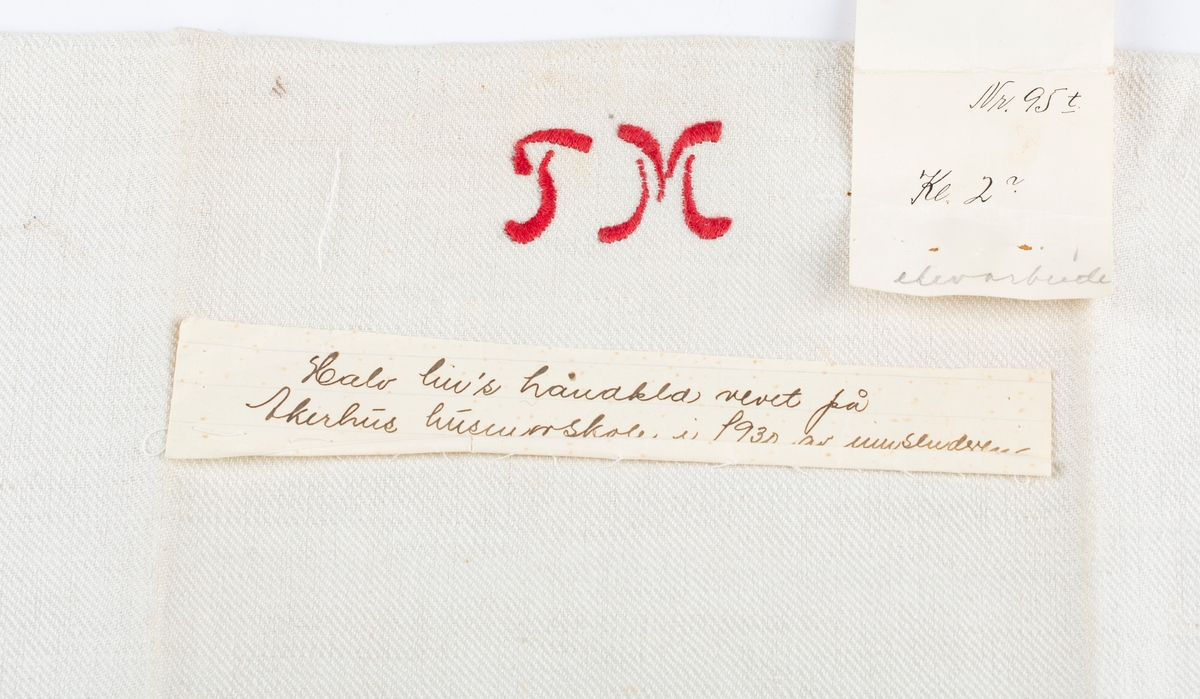 TM
Nr. 95 t.
Kl. 2
elevarbeide
Halv lin's håndkle vevet på
Akerhus húsmorskole i 1930 av innsenderen